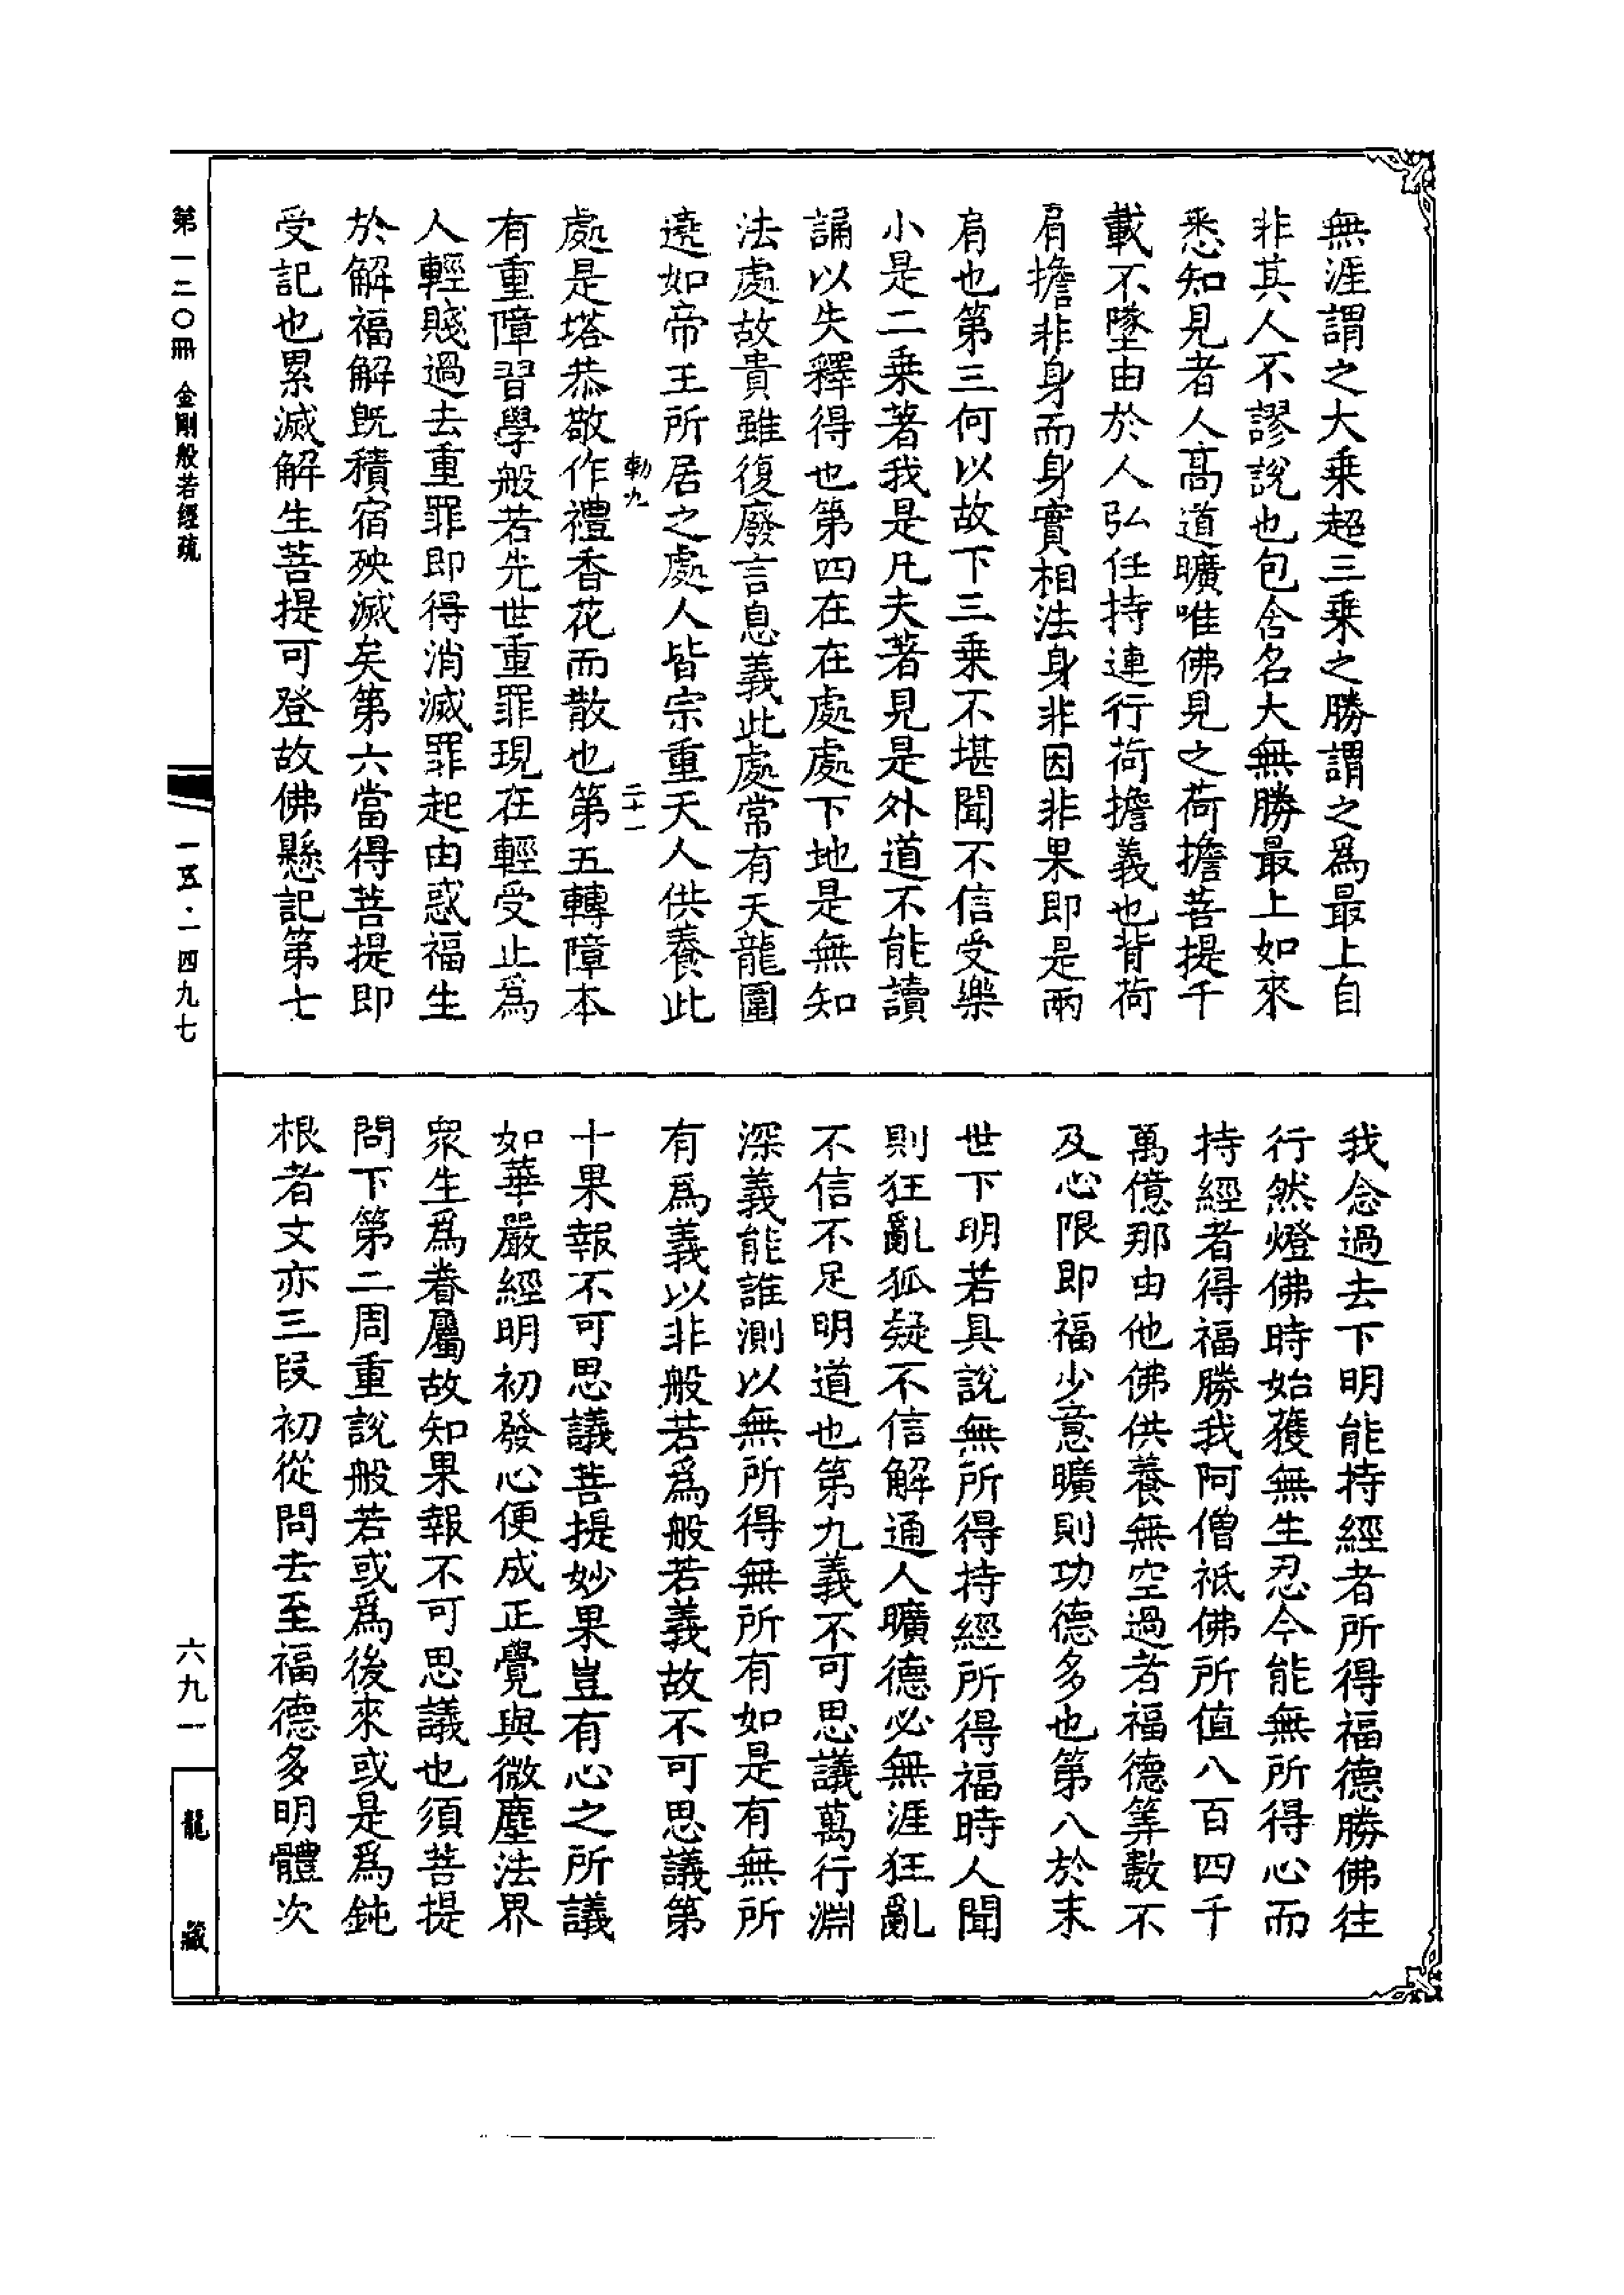 無涯謂之大乗超三乗之勝謂之爲最上自
非其人不謬說也包含名大無勝最上如來
悉知見者人髙道曠唯佛見之荷擔菩提千
載不墜由於人弘任持連行荷擔義也背荷
肩擔非身而身實相法身非因非果即是兩
肩也第三何以故下三乗不堪聞不信受樂
小是二乗著我是凡夫著見是外道不能讀
誦以失釋得也第四在在處處下地是無知
法處故貴雖復廢言息義此處常有天龍圍
遶如帝王所居之處人皆宗重天人供養此
勒九
二十一
處是塔恭敬作禮香花而散也第五轉障本
有重障習學般若先世重罪現在輕受止爲
人輕賤過去重罪即得消滅罪起由惑福生
於解福解旣積宿殃滅矣第六當得菩提即
受記也累滅解生菩提可登故佛懸記第七
我念過去下明能持經者所得福德勝佛往
行然燈佛時始獲無生忍今能無所得心而
持經者得福勝我阿僧祇佛所值八百四千
萬億那由他佛供養無空過者福德筭數不
及心限即福少意曠則功德多也第八於末
世下明若具說無所得持經所得福時人聞
則狂亂狐疑不信解通人曠德必無涯狂亂
不信不足明道也第九義不可思議萬行淵
深義能誰測以無所得無所有如是有無所
有爲義以非般若爲般若義故不可思議第
十果報不可思議菩提妙果豈有心之所議
如華嚴經明初發心便成正覺與微塵法界
衆生爲眷屬故知果報不可思議也須菩提
問下第二周重說般若或爲後來或是爲鈍
根者文亦三段初從問去至福德多明體次
第一二〇冊 金剛般若經疏
一五·一四九七
六九一
龍藏